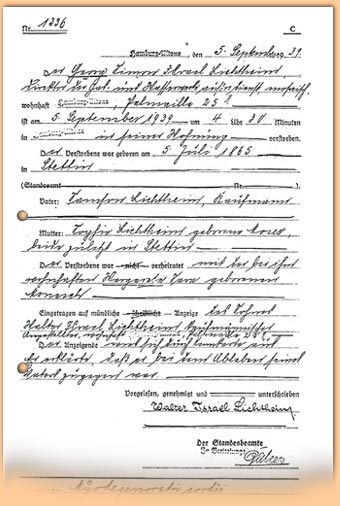 Nr. 1336 C
Hamburg-Altona, den 5. September 39.
Der Georg Simon Israel Lichtheim
Direktor der Gas- und Wasserwerke außer Dienst, mosaisch,
wohnhaft Hamburg-Altona, Palmaille 25
ist am 5. September 1939 um 4 Uhr 30 Minuten
in Hamburg-Altona in seiner Wohnung verstorben.
Der Verstorbene war geboren am 5. Juli 1865
in Stettin
(Standesamt Nr. ).
Vater: Lichtheim, Kaufmann
Mutter: Sophie Lichtheim geborene Moses,
beide zuletzt in Stettin
Der Verstorbene war nicht verheiratet mit der bei ihm
wohnhaften Sara geborenen
Eingetragen auf mündliche schriftliche Anzeige des Sohnes
Walter Israel Lichtheim, kaufmännischer
Angestellter, wohnhaft
Der Anzeigende wies sich durch Kennkarte aus.
Er erklärte, daß er bei dem Ableben seines
Vaters zugegen war.
Vorgelesen, genehmigt und unterschrieben
Walter Israel Lichtheim
Der Standesbeamte
In Vertretung: